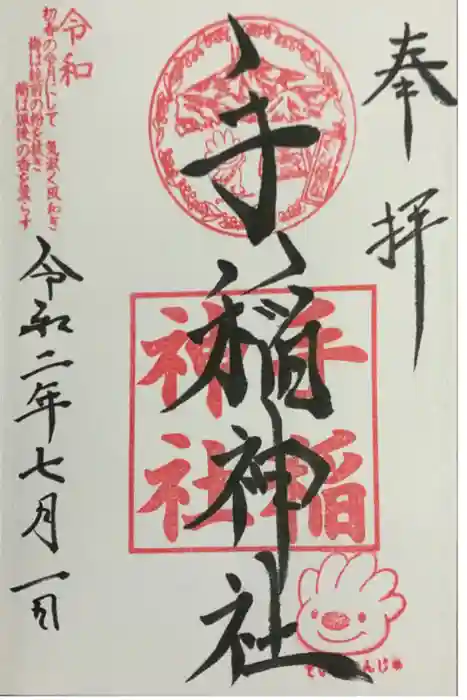 奉拝
手稲神社
手稲
神社
令和
初春の令月にして 気淑く風和ぎ
梅は鏡前の粉を披き
蘭は珮後の香を薫らす
令和二年七月一日